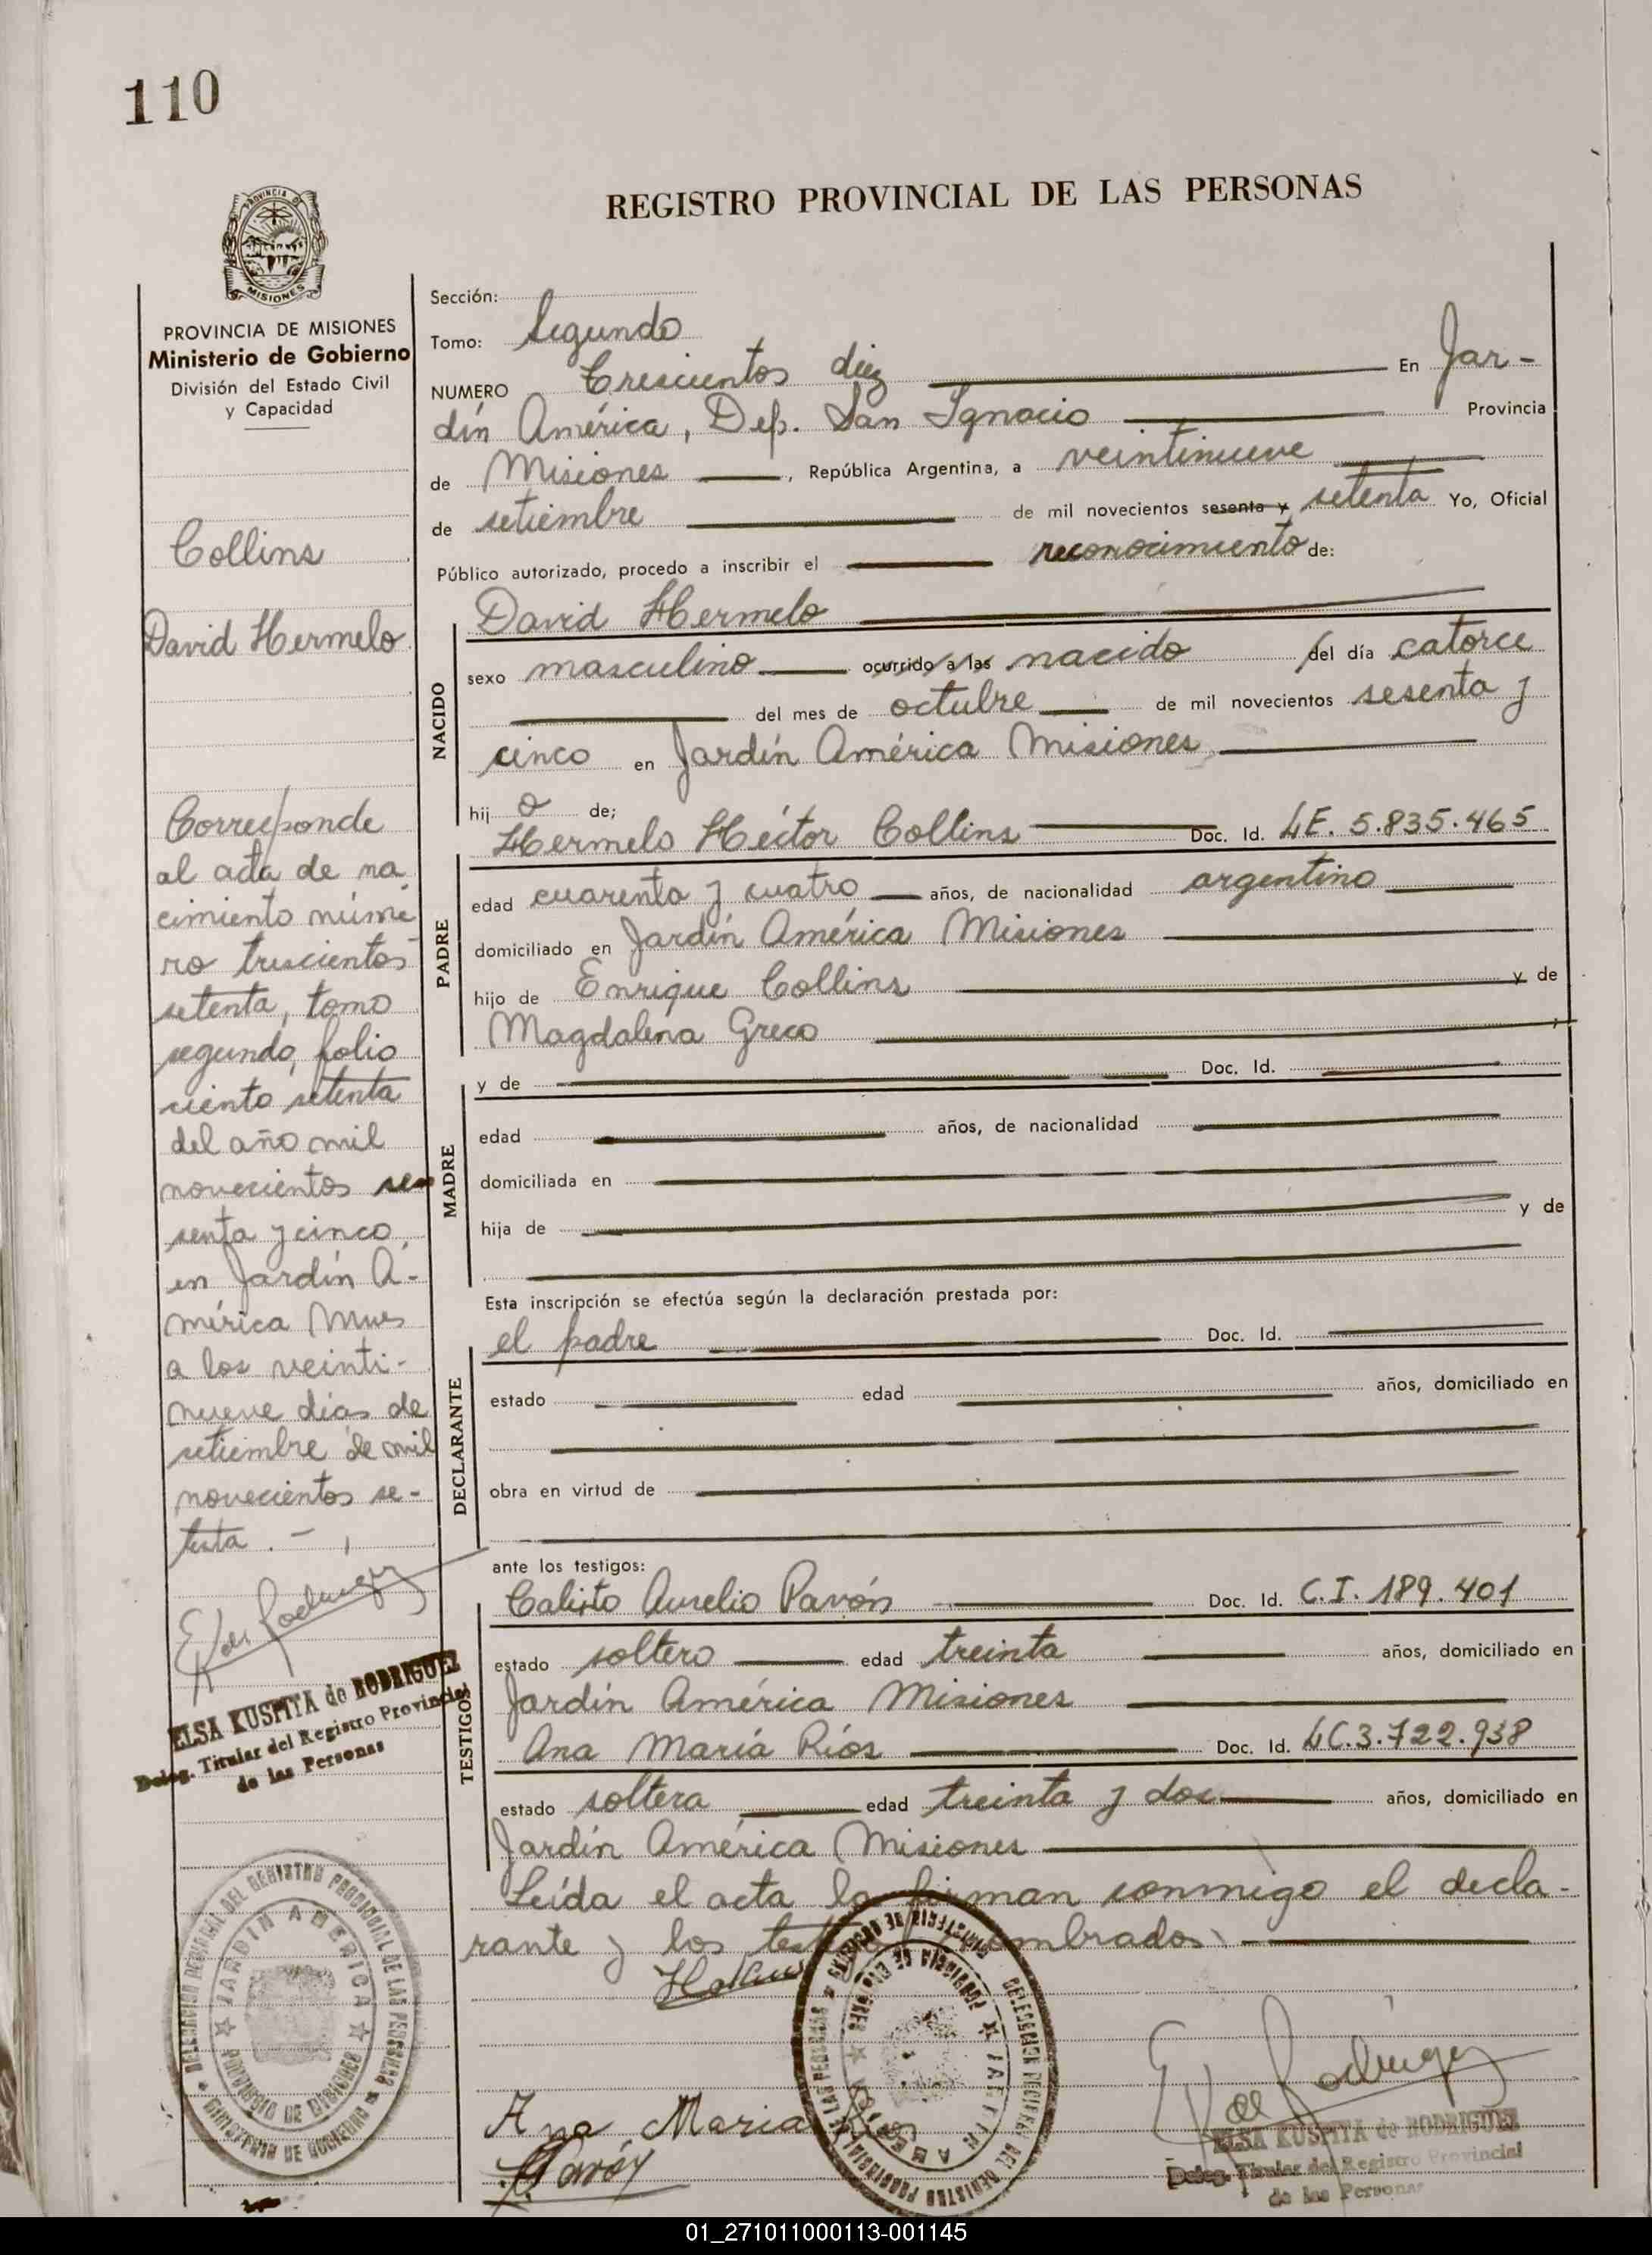 110
PROVINCIA DE
MISIONES
REGISTRO PROVINCIAL DE LAS PERSONAS
PROVINCIA DE MISIONES
Ministerio de Gobierno
División del Estado Civil
y Capacidad
Collins
David Hermelo
Corresponde
al acta de na
cimiento núme
ro trescientos
setenta, tomo
segundo, folio
ciento setenta
del año mil
novecientos se
senta y cinco,
en Jardín A-
mérica Mnes
a los veinti-
nueve días de
setiembre de mil
novecientos se-
tenta. -
E K de Rodriguez
ELSA KUSPITA de RODRIGUEZ
Deleg. Titular del Registro Provincial
de las Personas
DELEGACION REGIONAL DEL REGISTRO PROVINCIAL DE LAS PERSONAS
MINISTERIO DE GOBIERNO
JARDIN AMERICA
PROVINCIA DE MISIONES
Sección:
Tomo: Segundo
NUMERO Trescientos diez En Jar-
dín América, Dep. San Ignacio Provincia
de Misiones, República Argentina, a veintinueve
de setiembre de mil novecientos sesenta y setenta Yo, Oficial
Público autorizado, procedo a inscribir el reconocimiento de:
David Hermelo
NACIDO
sexo masculino ocurrido a las nacido del día catorce
del mes de octubre de mil novecientos sesenta y
cinco en Jardín América Misiones
hij o de;
PADRE
Hermelo Héctor Collins Doc. Id. LE. 5.835.465
edad cuarenta y cuatro años, de nacionalidad argentino
domiciliado en Jardín América Misiones
hijo de Enrique Collins y de
Magdalena Greco
MADRE
y de Doc. Id.
edad años, de nacionalidad
domiciliada en
hija de y de
Esta inscripción se efectúa según la declaración prestada por:
DECLARANTE
el padre Doc. Id.
estado edad años, domiciliado en
obra en virtud de
ante los testigos:
TESTIGOS
Calisto Aurelio Pavón Doc. Id. C.I. 189.401
estado soltero edad treinta años, domiciliado en
Jardín América Misiones
Ana María Ríos Doc. Id. LC.3.722.938
estado soltera edad treinta y dos años, domiciliado en
Jardín América Misiones
Leída el acta la firman conmigo el decla-
rante y los nombrados
Ana Maria
Pavón
E K de Rodriguez
ELSA KUSPITA de RODRIGUEZ
Deleg. Titular del Registro Provincial
de las Personas
01_271011000113-001145